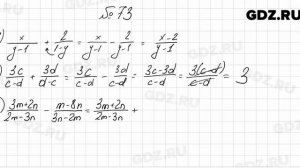 GDZ.RU
№ 73
) x/(y-1) + 2/(1-y) = x/(y-1) - 2/(y-1) = (x-2)/(y-1)
) 3c/(c-d) + 3d/(d-c) = 3c/(c-d) - 3d/(c-d) = (3c-3d)/(c-d) = 3(c-d)/(c-d) = 3
) (3m+2n)/(2m-3n) - (m-8n)/(3n-2m) = (3m+2n)/(2m-3n) +
GDZ.RU